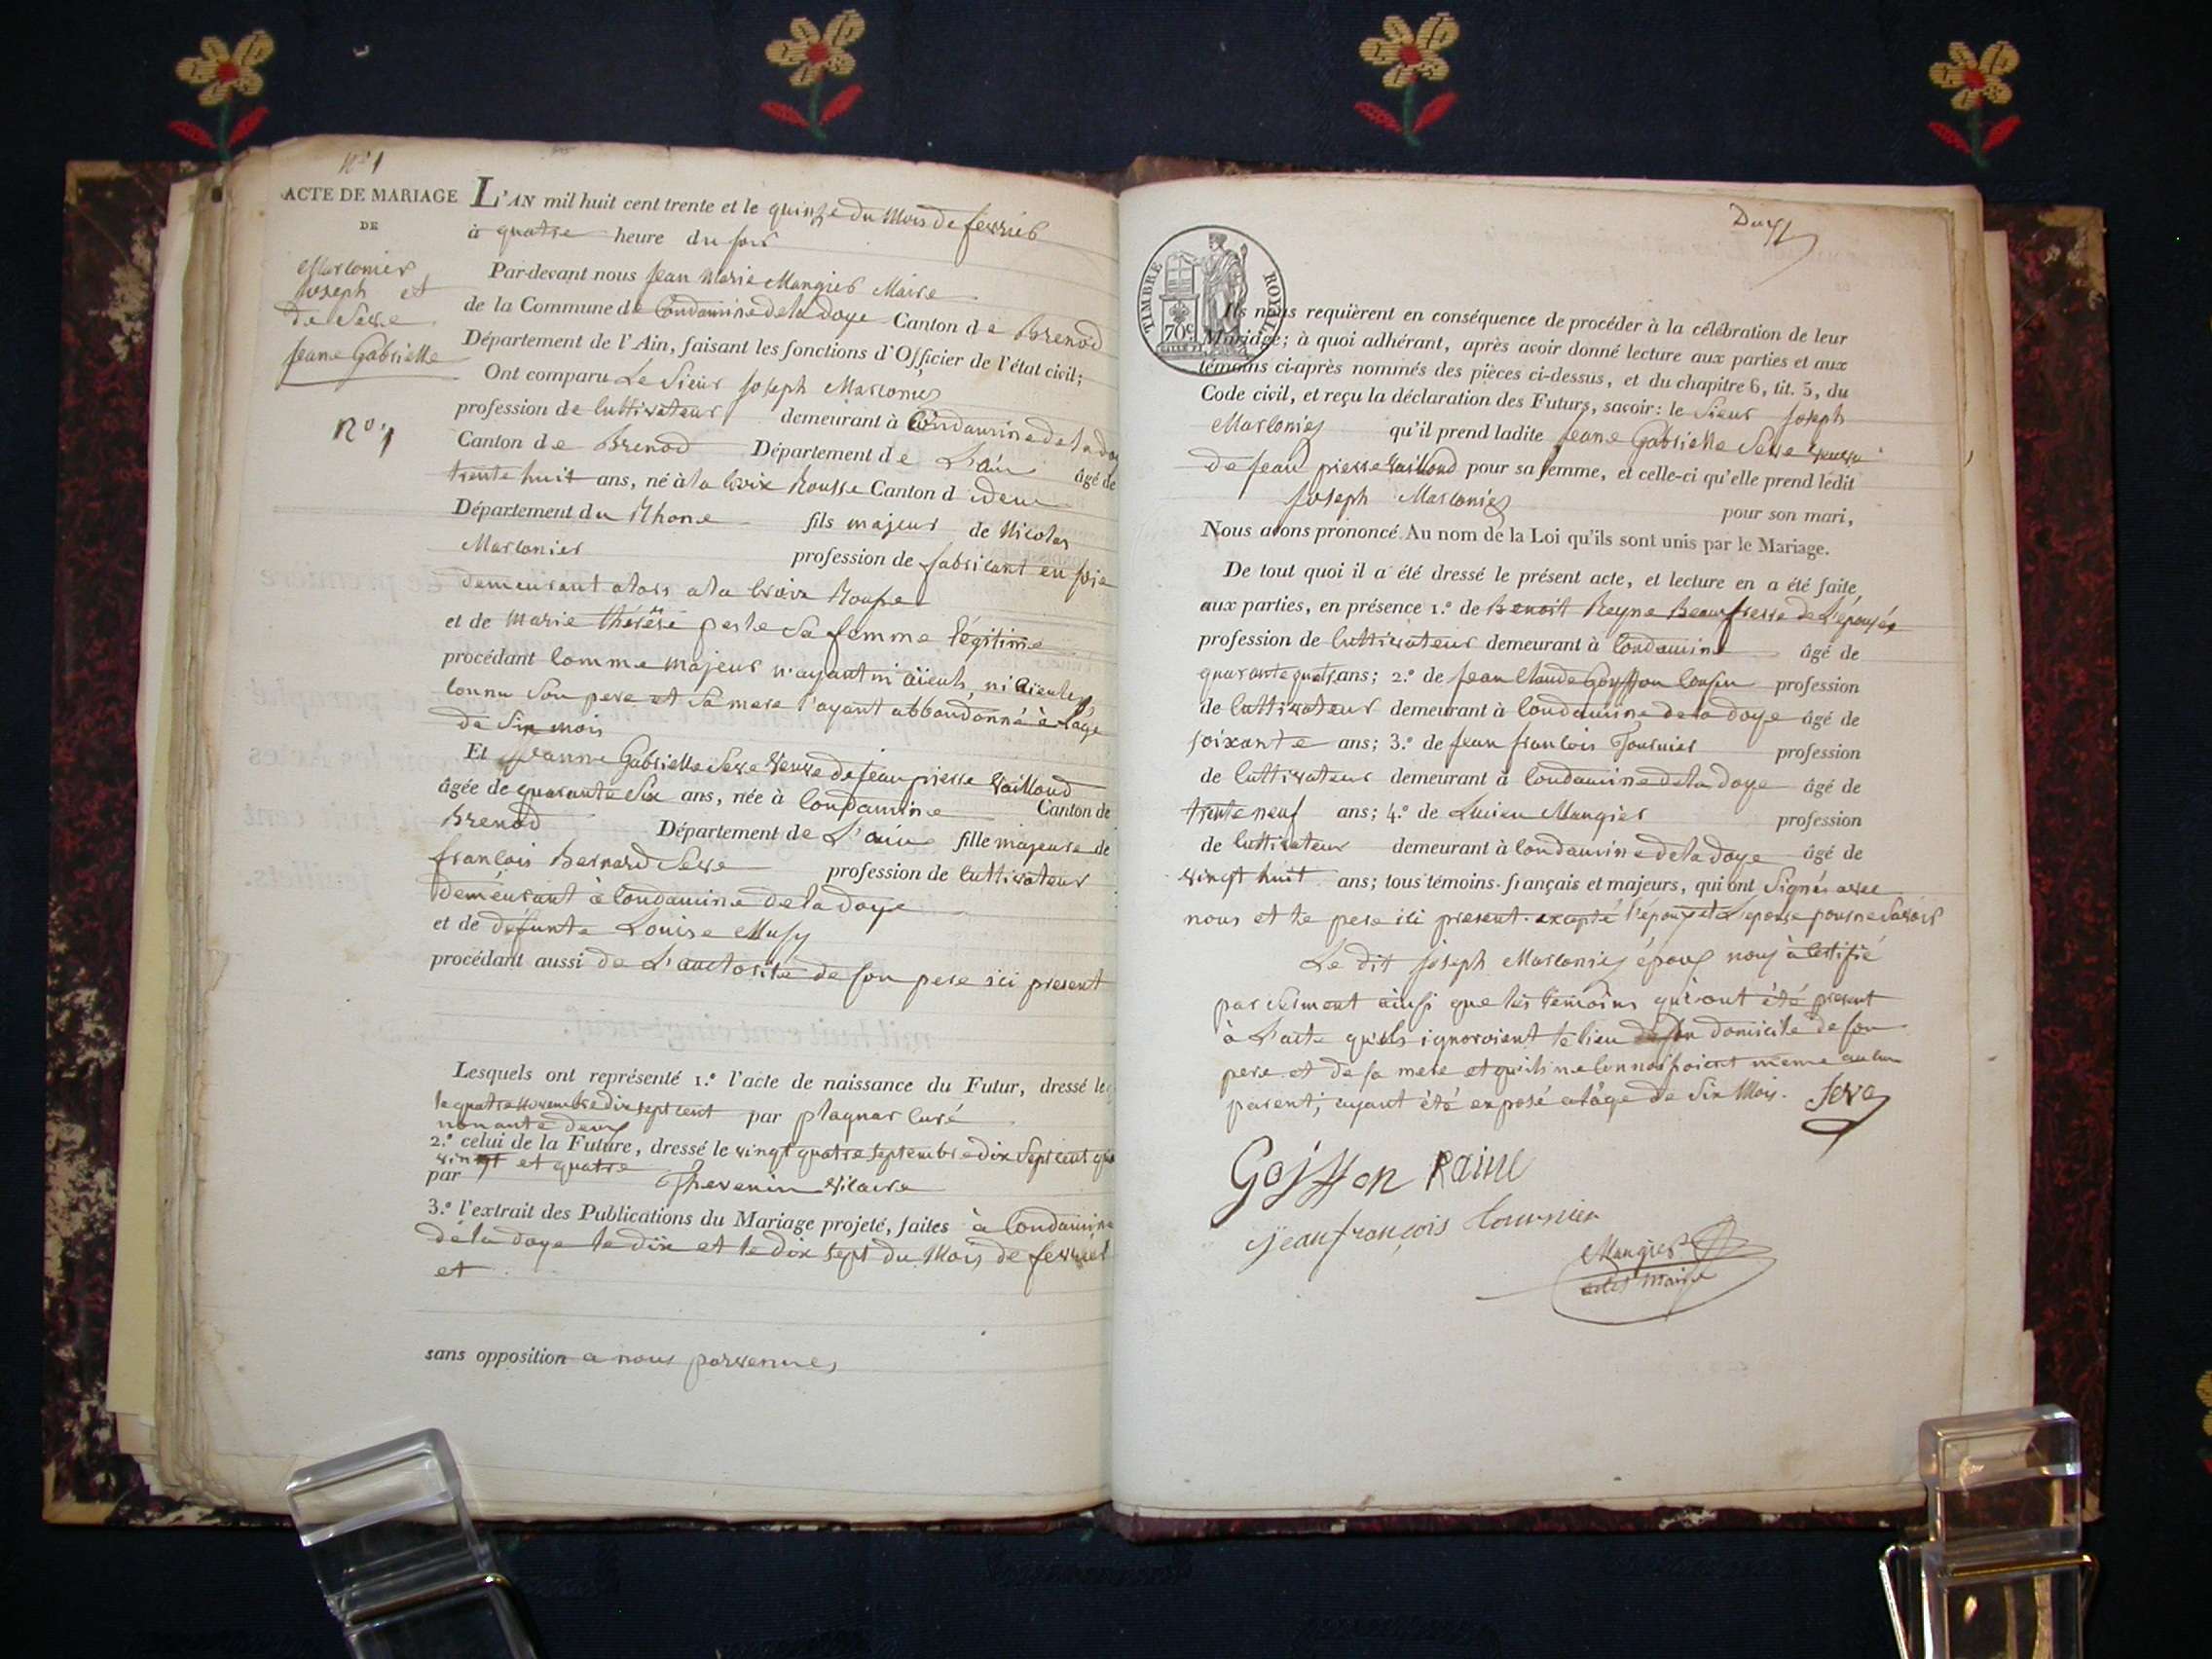 N° 1
ACTE DE MARIAGE
DE
Marconier
Joseph et
de Seve
Jeane Gabrielle
N° 1
L'AN mil huit cent trente et le quinze du mois de fevrier
à quatre heure du soir
Par-devant nous Jean Marie Mangier Maire
de la Commune de Condamine de la doye Canton de Brenod
Département de l'Ain, faisant les fonctions d'Officier de l'état civil;
Ont comparu Le Sieur Joseph Marconier
profession de Cultivateur demeurant à Condamine de la do
Canton de Brenod Département de L'ain âgé de
trente huit ans, né à la Croix Rousse Canton d idem
Département du Rhone fils majeur de Nicolas
Marconier profession de fabricant en soie
demeurant alors a la Croix Rousse
et de Marie thérèse perle sa femme légitime
procédant Comme majeur n'ayant ni aïeuls, ni aïeules
connu Son pere et Sa mere l'ayant abbandonné à l'age
de Six mois
Et Jeanne Gabrielle Seve Veuve de Jean pierre Vailloud
âgée de quarante Six ans, née à Condamine Canton de
Brenod Département de L'ain fille majeure de
françois Bernard Seve profession de Cultivateur
demeurant à Condamine de la doye
et de défunte Louise Musy
procédant aussi de L'auctorité de son pere ici present
Lesquels ont représenté 1.° l'acte de naissance du Futur, dressé le
le quatre Novembre dix sept cent par plagnar Curé
nonante deux
2.° celui de la Future, dressé le vingt quatre septembre dix sept cent qua
vingt et quatre
par Thevenin Vicaire
3.° l'extrait des Publications du Mariage projeté, faites à Condamine
de la doye le dix et le dix sept du Mois de fevrier
et
sans opposition a nous parvenues
TIMBRE ROYAL
70c
Ils nous requièrent en conséquence de procéder à la célébration de leur
Mariage; à quoi adhérant, après avoir donné lecture aux parties et aux
témoins ci-après nommés des pièces ci-dessus, et du chapitre 6, tit. 5, du
Code civil, et reçu la déclaration des Futurs, savoir: le Sieur Joseph
Marconier qu'il prend ladite Jeane Gabrielle Seve Veuve
de Jean pierre Vailloud pour sa femme, et celle-ci qu'elle prend lédit
Joseph Marconier
pour son mari,
Nous avons prononcé Au nom de la Loi qu'ils sont unis par le Mariage.
De tout quoi il a été dressé le présent acte, et lecture en a été faite
aux parties, en présence 1.° de Benoit Reyne Beaufrere de L'épousée
profession de Cultivateur demeurant à Condamine âgé de
quarante quatre ans; 2.° de Jean Claude Goyffon Cousin profession
de Cultivateur demeurant à Condamine de la doye âgé de
soixante ans; 3.° de Jean françois Tournier profession
de Cultivateur demeurant à Condamine de la doye âgé de
trente neuf ans; 4.° de Lucien Mangier profession
de Cultivateur demeurant à Condamine de la doye âgé de
vingt huit ans; tous témoins français et majeurs, qui ont Signés avec
nous et le pere ici present excepté l'époux et L'epouse pour ne Savoir
Le dit Joseph Marconier époux nous à Certifié
par Serment ainsi que les témoins qui ont été present
à L'acte qu'ils ignoroient le lieu domicile de son
pere et de sa mere et qu'ils ne Connoissoient meme aucun
parent, ayant été exposé a l'âge de Six Mois. Seve
Goiffon Raine
jean françois tournier
Mangier
Maire